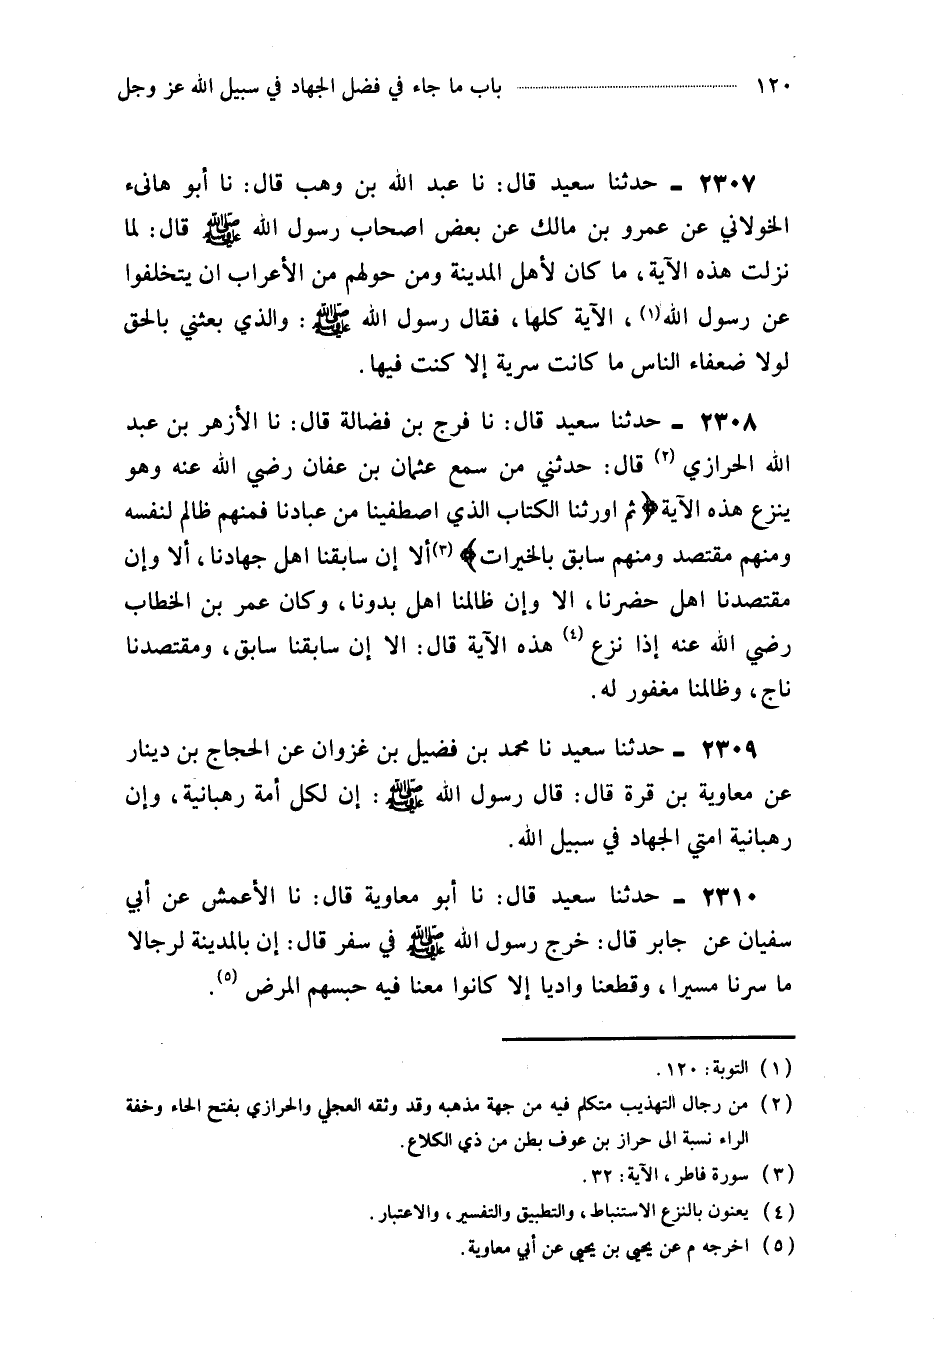 ١٢٠ ............ باب ما جاء في فضل الجهاد في سبيل الله عز وجل
٢٣٠٧ ـ حدثنا سعيد قال: نا عبد الله بن وهب قال: نا أبو هانىء
الخولاني عن عمرو بن مالك عن بعض اصحاب رسول الله ﷺ قال: لما
نزلت هذه الآية، ما كان لأهل المدينة ومن حولهم من الأعراب ان يتخلفوا
عن رسول الله(١)، الآية كلها، فقال رسول الله ﷺ: والذي بعثني بالحق
لولا ضعفاء الناس ما كانت سرية إلا كنت فيها.
٢٣٠٨ ـ حدثنا سعيد قال: نا فرج بن فضالة قال: نا الأزهر بن عبد
الله الحرازي (٢) قال: حدثني من سمع عثمان بن عفان رضي الله عنه وهو
ينزع هذه الآية ﴿ثم اورثنا الكتاب الذي اصطفينا من عبادنا فمنهم ظالم لنفسه
ومنهم مقتصد ومنهم سابق بالخيرات﴾ (٣) ألا إن سابقنا اهل جهادنا، ألا وإن
مقتصدنا اهل حضرنا، الا وإن ظالمنا اهل بدونا، وكان عمر بن الخطاب
رضي الله عنه إذا نزع (٤) هذه الآية قال: الا إن سابقنا سابق، ومقتصدنا
ناج، وظالمنا مغفور له.
٢٣٠٩ ـ حدثنا سعيد نا محمد بن فضيل بن غزوان عن الحجاج بن دينار
عن معاوية بن قرة قال: قال رسول الله ﷺ: إن لكل أمة رهبانية، وإن
رهبانية امتي الجهاد في سبيل الله.
٢٣١٠ ـ حدثنا سعيد قال: نا أبو معاوية قال: نا الأعمش عن أبي
سفيان عن جابر قال: خرج رسول الله ﷺ في سفر قال: إن بالمدينة لرجالا
ما سرنا مسيرا، وقطعنا واديا إلا كانوا معنا فيه حبسهم المرض (٥).
(١) التوبة: ١٢٠.
(٢) من رجال التهذيب متكلم فيه من جهة مذهبه وقد وثقه العجلي والحرازي بفتح الحاء وخفة
الراء نسبة الى حراز بن عوف بطن من ذي الكلاع.
(٣) سورة فاطر، الآية: ٣٢.
(٤) يعنون بالنزع الاستنباط، والتطبيق والتفسير، والاعتبار.
(٥) اخرجه م عن يحيى بن يحيى عن أبي معاوية.